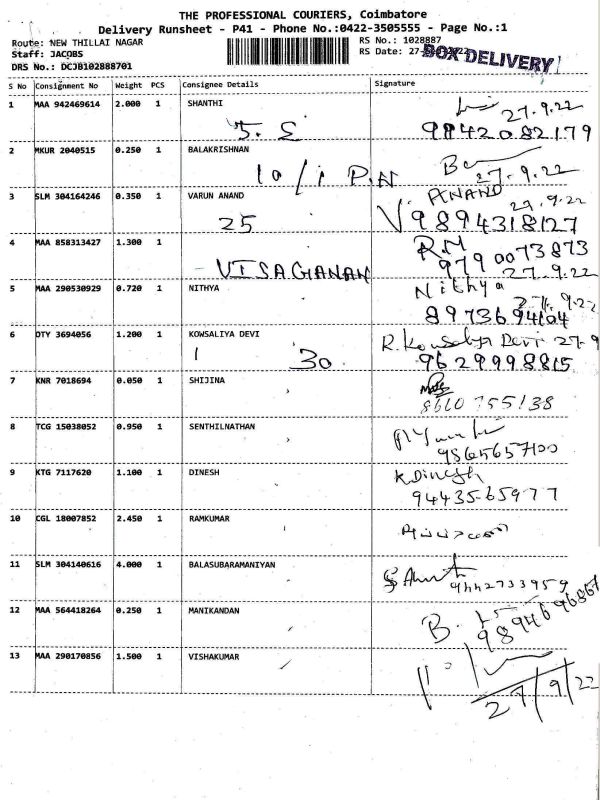 THE PROFESSIONAL COURIERS, Coimbatore
Delivery Runsheet - P41 - Phone No.:0422-3505555 - Page No.:1
Route: NEW THILLAI NAGAR RS No.: 1028887
Staff: JACOBS RS Date: 27-
BOX DELIVERY
DRS No.: DCJB102888701
S No Consignment No Weight PCS Consignee Details Signature
1 MAA 942469614 2.000 1 SHANTHI 27.9.22
5. S 9842082179
2 MKUR 2040515 0.250 1 BALAKRISHNAN
10/1 P.N 27.9.22
3 SLM 304164246 0.350 1 VARUN ANAND ANAND 27.9.22
25 9894318127
4 MAA 858313427 1.300 1 R.M
9790073873
VISAGANAN 27.9.22
5 MAA 290530929 0.720 1 NITHYA Nithya
27.9.22
8973694104
6 DTY 3694056 1.200 1 KOWSALIYA DEVI R. Kowsalya Devi 27-9
30 9629998815
7 KNR 7018694 0.050 1 SHIJINA
8610755138
8 TCG 15038052 0.950 1 SENTHILNATHAN
9865657100
9 KTG 7117620 1.100 1 DINESH K Dinesh
94435-65977
10 CGL 18007852 2.450 1 RAMKUMAR
11 SLM 304140616 4.000 1 BALASUBARAMANIYAN
9442733959
12 MAA 564418264 0.250 1 MANIKANDAN B.
9894696867
13 MAA 290170856 1.500 1 VISHAKUMAR
27/9/22